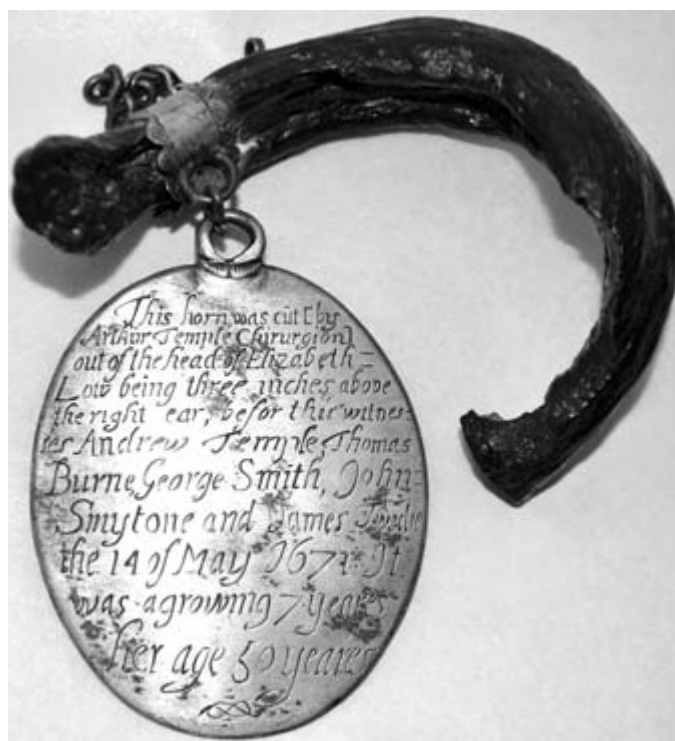 This horn was cut [by
Arthur Temple Chirurgion]
out of the head of Elizabeth=
Low being three inches above
the right ear, befor thir witnes-
ses Andrew Temple Thomas
Burne, George Smith, John=
Smytone and James
the 14 of May 1671. It
was agrowing 7 yeares
her age 50 yeares